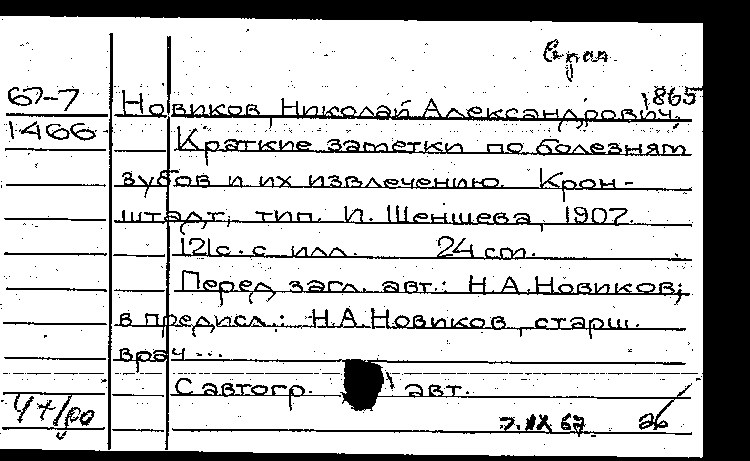 врач
67-7 Новиков, Николай Александрович, 1865
1466 Краткие заметки по болезням
зубов и их извлечению. Крон-
штадт, тип. И. Шеншева, 1907.
121 с. с илл. 24 cm.
Перед загл. авт.: Н.А.Новиков;
в предисл.: Н.А.Новиков, старш.
врач...
С автогр. авт.
7.IX 67